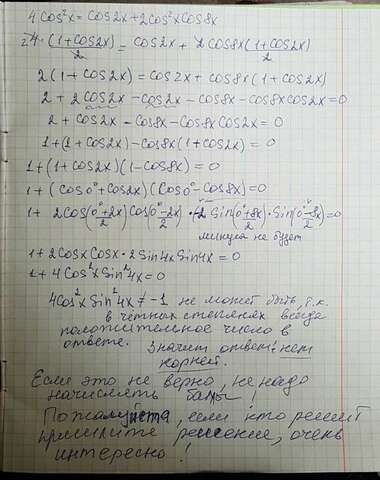 4cos²x = cos2x + 2cos²x cos8x
2 4 · (1+cos2x)/2 = cos2x + 2cos8x(1+cos2x)/2
2(1+cos2x) = cos2x + cos8x(1+cos2x)
2 + 2cos2x - cos2x - cos8x - cos8x cos2x = 0
2 + cos2x - cos8x - cos8x cos2x = 0
1+(1+cos2x) - cos8x(1+cos2x) = 0
1+(1+cos2x)(1-cos8x) = 0
1+(cos0°+cos2x)(cos0°-cos8x) = 0
1+ 2cos(0°+2x)/2 cos(0°-2x)/2 · (-2 sin(0°+8x)/2 · sin(0°-8x)/2) = 0
минуса не будет
1+2cosx cosx · 2sin4x sin4x = 0
1+4cos²x sin²4x = 0
4cos²x sin²4x ≠ -1 не может быть, т.к.
в четных степенях всегда
положительное число в
ответе. Значит ответ: нет
корней.
Если это не верно, не надо
начислять балы!
Пожалуйста, если кто решит
пришлите решение, очень
интересно!